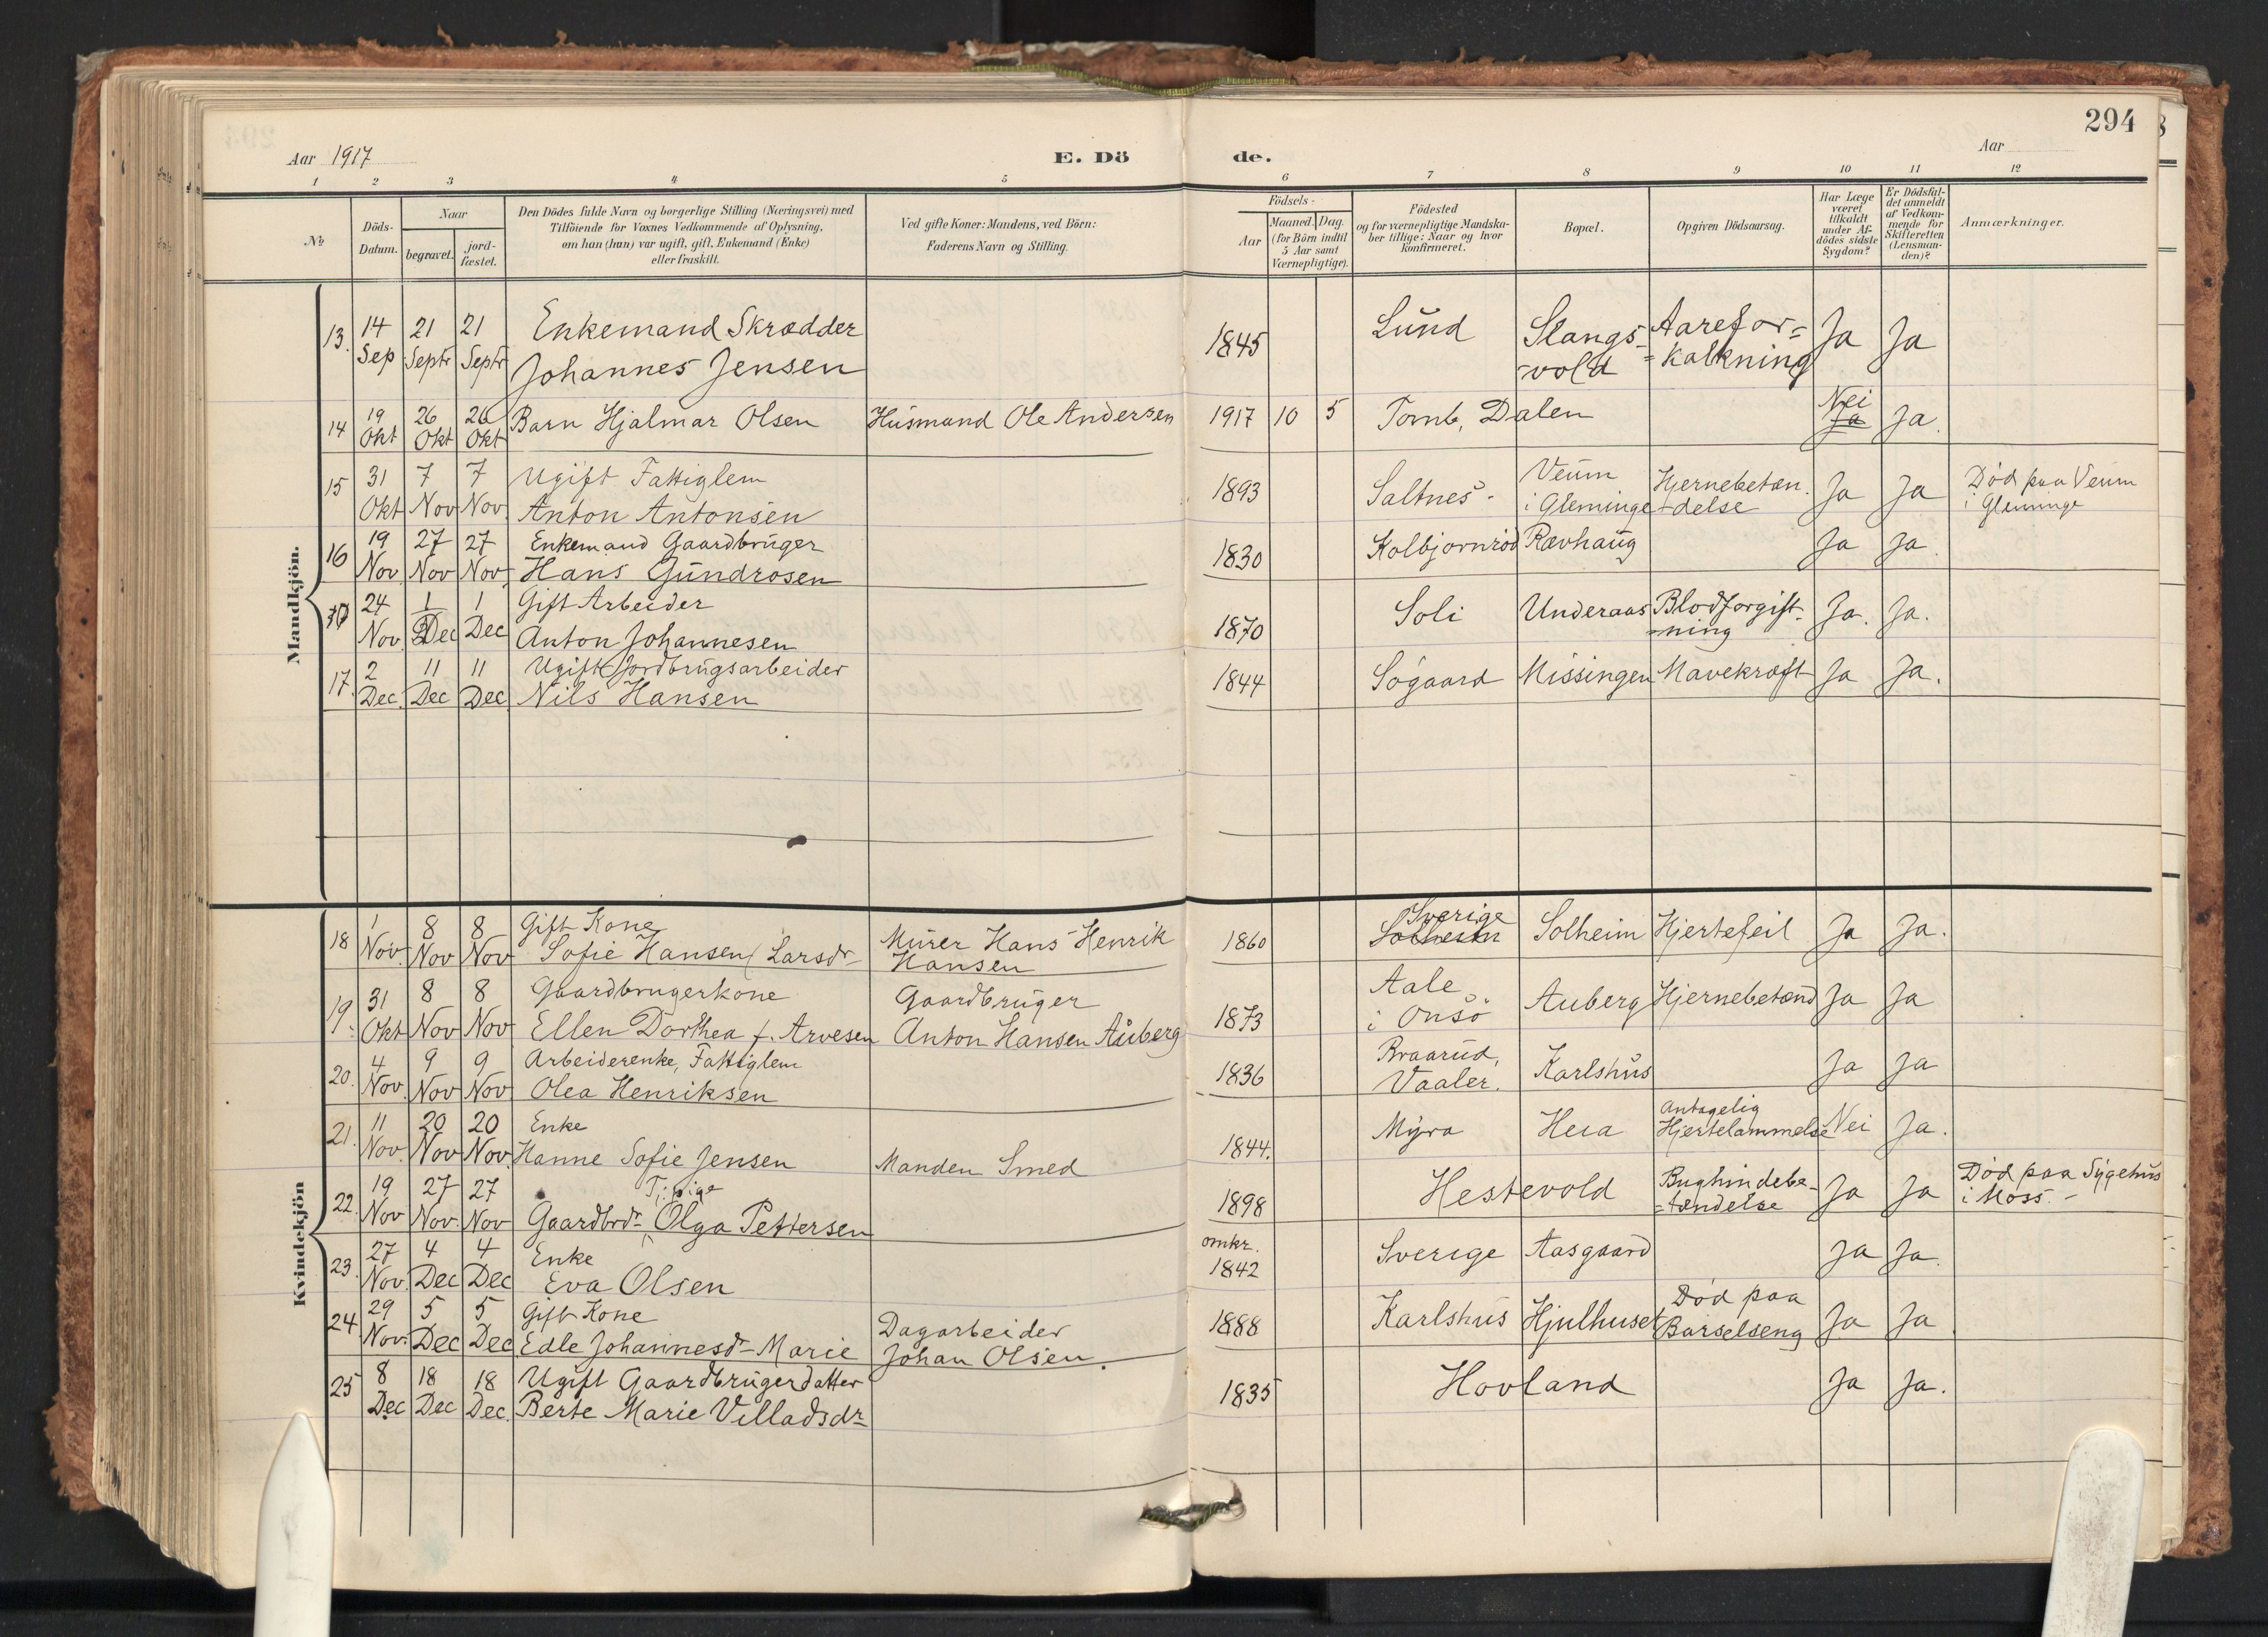 294
Aar 1917
E. Dö de.
Aar
1 2 3 4 5 6 7 8 9 10 11 12
No
Döds-Datum.
Naar
begravet.
jord-fæstet.
Den Dödes fulde Navn og borgerlige Stilling (Næringsvei) med
Tilföiende for Voxnes Vedkommende af Oplysning,
om han (hun) var ugift, gift, Enkemand (Enke)
eller fraskilt.
Ved gifte Koner: Mandens, ved Börn:
Faderens Navn og Stilling.
Födsels-
Aar
Maaned. Dag.
(for Börn indtil
5 Aar samt
Værnepligtige).
Födested
og for værnepligtige Mandska-
ber tillige: Naar og hvor
konfirmeret.
Bopæl.
Opgiven Dödsaarsag.
Har Læge
været
tilkaldt
under Af-
dödes sidste
Sygdom?
Er Dödsfal-
det anmeldt
af Vedkom-
mende for
Skifteretten
(Lensman-
den)?
Anmærkninger.
Mandkjön.
13. 14 Sep 21 Septr 21 Septr Enkemand Skrædder
Johannes Jensen 1845 Lund Slangs-
-vold Aarefor=
=kalkning Ja Ja
14 19 Okt 26 Okt 26 Okt Barn Hjalmar Olsen Husmand Ole Andersen 1917 10 5 Tomb, Dalen Nei
Ja Ja.
15 31 Okt 7 Nov 7 Nov Ugift Fattiglem
Anton Antonsen 1893 Saltnes. Veum
i Gleminge Hjernebetæn.
-delse Ja Ja Död paa Veum
i Gleminge
16 19 Nov 27 Nov 27 Nov Enkemand Gaardbruger
Hans Gundrosen 1830 Kolbjornröd Rævhaug Ja Ja.
24 Nov 1 Dec 1 Dec Gift Arbeider
Anton Johannesen 1870 Soli Underaas Blodforgift-
-ning Ja. Ja.
17. 2 Dec. 11 Dec 11 Dec Ugift Jordbrugsarbeider
Nils Hansen 1844 Sögaard Missingen Mavekræft Ja Ja.
Kvindekjön
18 1 Nov. 8 Nov 8 Nov Gift Kone
Sofie Hansen / Larsdr Murer Hans Henrik
Hansen 1860 Sverige
Solheim Solheim Hjertefeil Ja Ja.
19. 31 Okt 8 Nov 8 Nov Gaardbrugerkone
Ellen Dorthea f. Arvesen Gaardbruger
Anton Hansen Auberg 1873 Aale
i Onsö Auberg Hjernebetænd Ja Ja
20. 4 Nov. 9 Nov 9 Nov Arbeiderenke, Fattiglem
Olea Henriksen 1836 Braarud,
Vaaler. Karlshus Ja Ja
21. 11 Nov. 20 Nov 20 Nov. Enke
Hanne Sofie Jensen Manden Smed 1844. Myra Hera Antagelig
Hjertelammelse Nei Ja.
22. 19 Nov 27 Nov. 27 Nov Tj. pige
Gaardbrdr Olga Pettersen 1898 Hestevold Bughindebe-
=tændelse Ja Ja Död paa Sygehus
i Moss.-
23. 27 Nov. 4 Dec 4 Dec Enke
Eva Olsen omkr.
1842 Sverige Aasgaard Ja Ja.
24 29 Nov. 5 Dec 5 Dec Gift Kone
Edle Johannesdr Marie Dagarbeider
Johan Olsen. 1888 Karlshus Hjulhuset Död paa
Barselseng Ja Ja
25 8 Dec 18 Dec 18 Dec. Ugift Gaardbrugerdatter
Berte Marie Villadsdr 1835 Hovland Ja Ja.